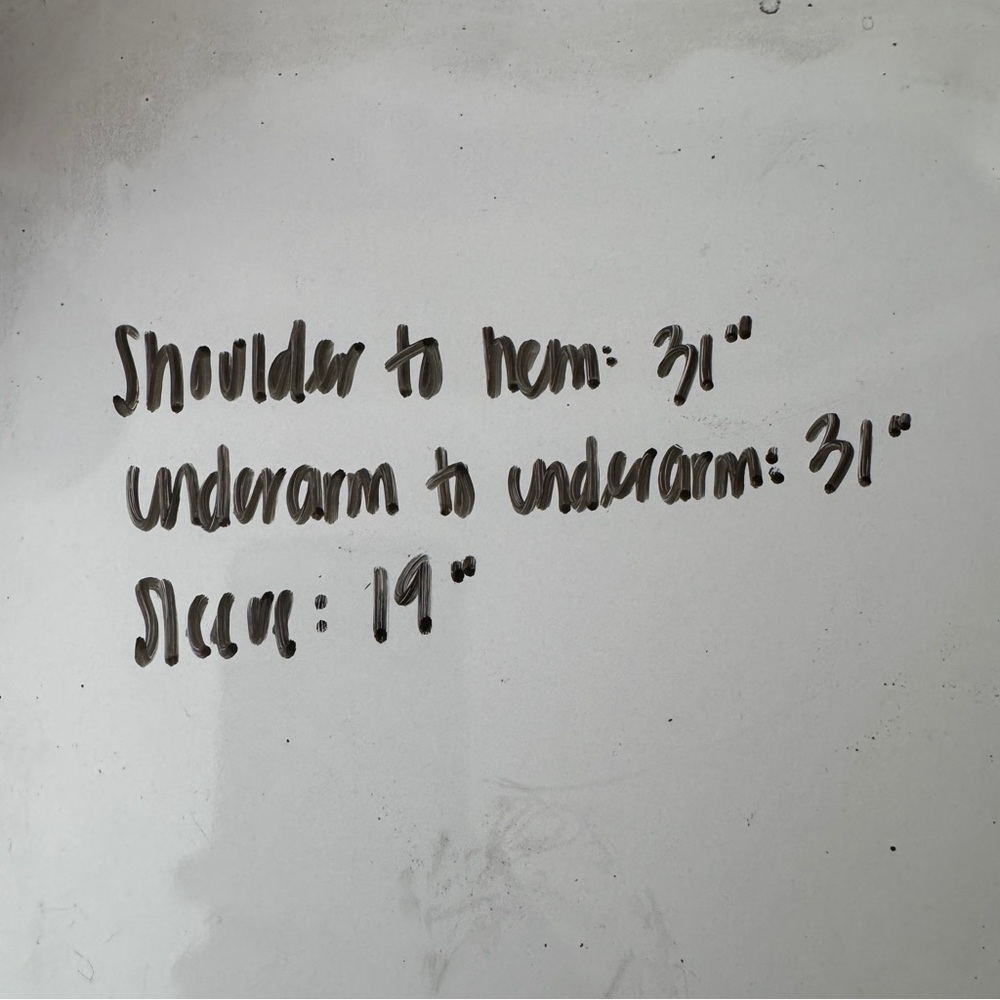 Shoulder to hem: 31"
underarm to underarm: 31"
Sleeve: 19"